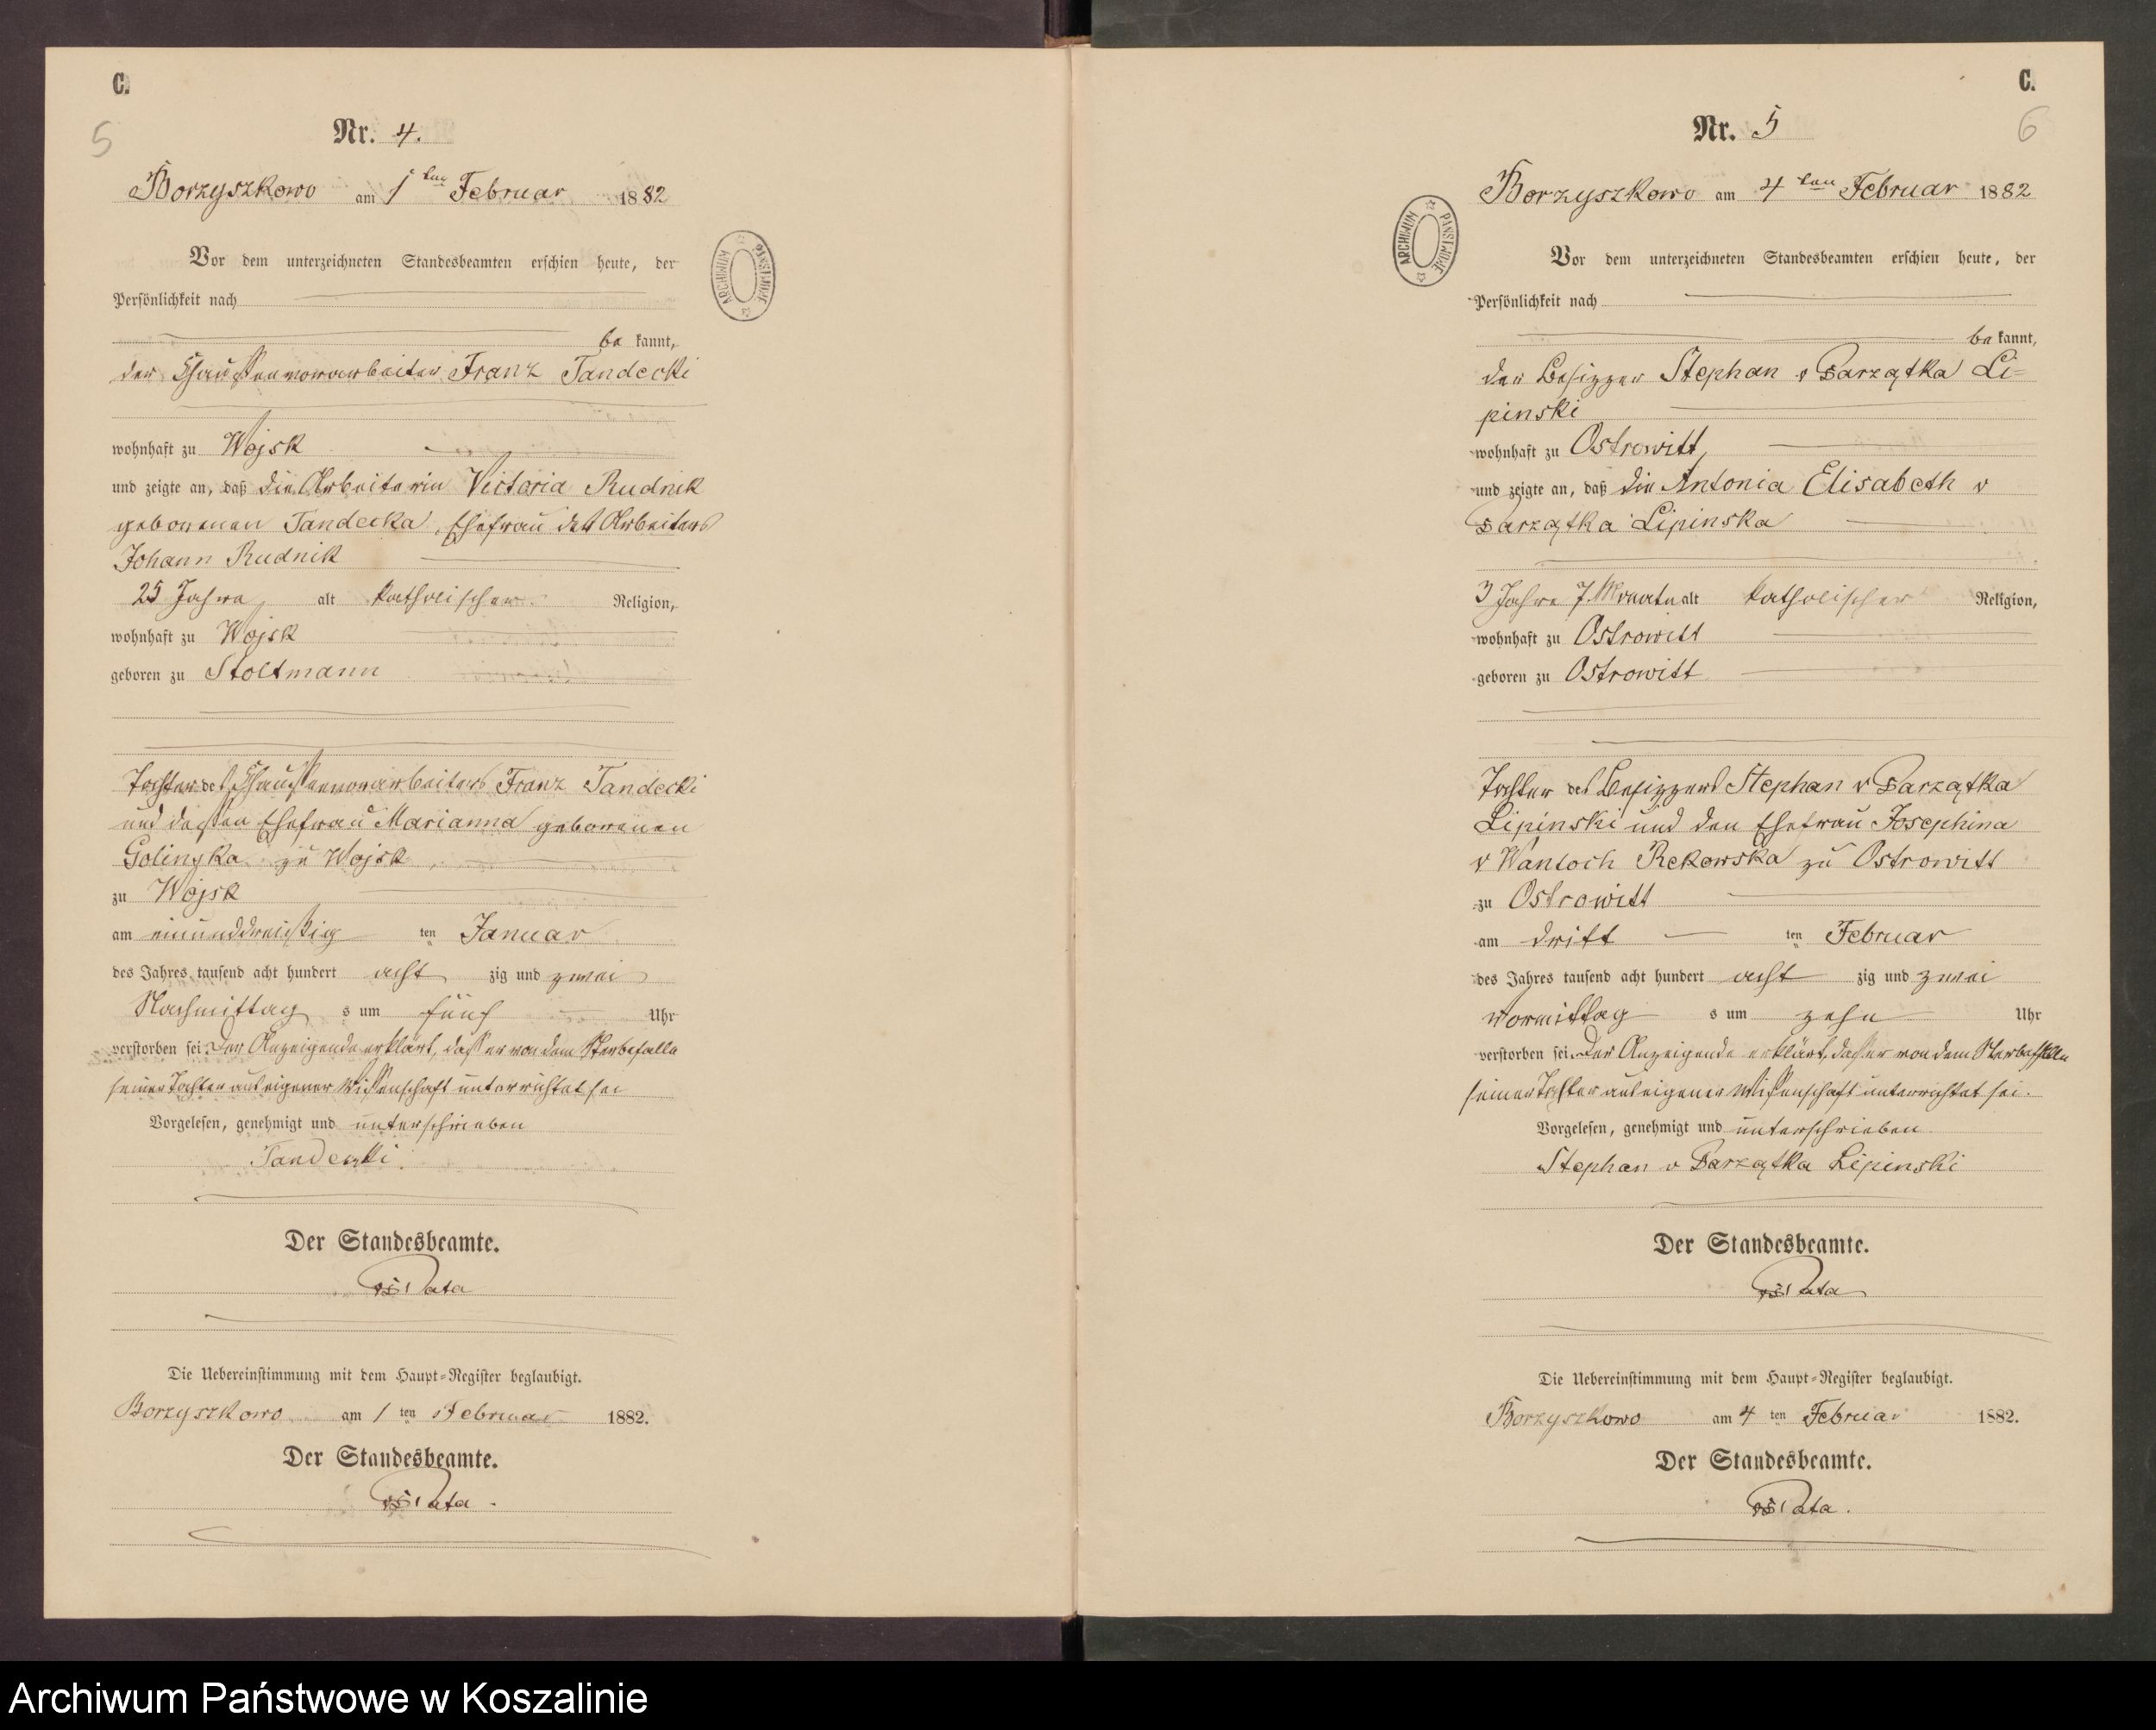 C.
5
Nr. 4.
Borzyszkowo am 1ten Februar 1882
Vor dem unterzeichneten Standesbeamten erschien heute, der
Persönlichkeit nach
be kannt,
der Chausseevorarbeiter Franz Tandecki
wohnhaft zu Wojsk
und zeigte an, daß die Arbeiterin Victoria Rudnik
geborenen Tandecka, Ehefrau des Arbeiters
Johann Rudnik
25 Jahre, alt katholischer Religion,
wohnhaft zu Wojsk
geboren zu Stoltmann
Tochter des Chausseevorarbeiters Franz Tandecki
und dessen Ehefrau Marianna geborenen
zu Wojsk,
zu Wojsk
am einunddreißig ten Januar
des Jahres tausend acht hundert acht zig und zwei
Nachmittag s um fünf Uhr
verstorben sei. Der Anzeigende erklärt, dass er von dem Sterbefalle
seiner Tochter aus eigener Wissenschaft unterrichtet sei
Vorgelesen, genehmigt und unterschrieben
Tandecki
Der Standesbeamte.
Pata
Die Uebereinstimmung mit dem Haupt-Register beglaubigt.
Borzyszkowo am 1 ten Februar 1882.
Der Standesbeamte.
Pata.
ARCHIWUM PAŃSTWOWE
C.
6
Nr. 5
Borzyszkowo am 4ten Februar 1882
ARCHIWUM PAŃSTWOWE
Vor dem unterzeichneten Standesbeamten erschien heute, der
Persönlichkeit nach
be kannt,
der Besitzer Stephan v Barzątka Li=
pinski
wohnhaft zu Ostrowitt,
und zeigte an, daß die Antonia Elisabeth v
Barzątka Lipinska
3 Jahre 7 Monate alt katholischer Religion,
wohnhaft zu Ostrowitt
geboren zu Ostrowitt
Tochter des Besitzers Stephan v Barzątka
Lipinski und der Ehefrau Josephina
v Wantoch Rekowska zu Ostrowitt
zu Ostrowitt
am dritt ten Februar
des Jahres tausend acht hundert acht zig und zwei
Vormittag s um zehn Uhr
verstorben sei. Der Anzeigende erklärt, dass er von dem Sterbefalle
seiner Tochter aus eigener Wissenschaft unterrichtet sei.
Vorgelesen, genehmigt und unterschrieben
Stephan v Barzątka Lipinski
Der Standesbeamte.
Pata
Die Uebereinstimmung mit dem Haupt-Register beglaubigt.
Borzyszkowo am 4 ten Februar 1882.
Der Standesbeamte.
Pata.
Archiwum Państwowe w Koszalinie